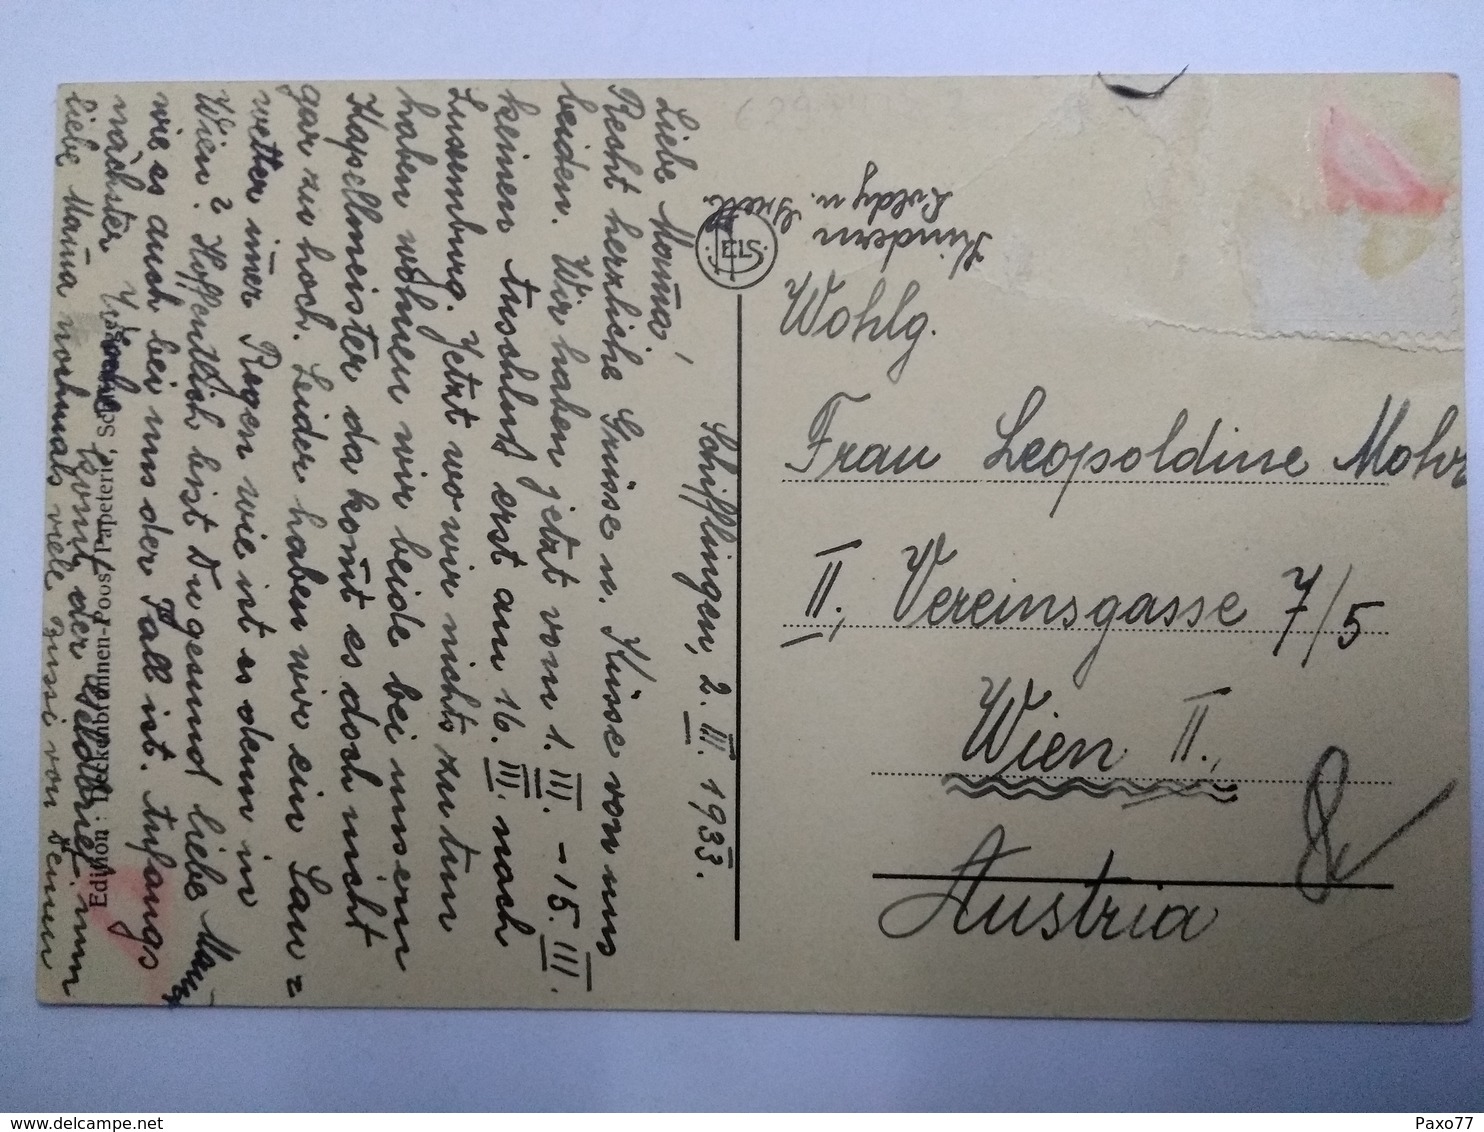 Schifflingen, 2. III. 1933.
Liebe Mama,
Recht herzliche Grüsse u. Küsse von uns
beiden. Wir haben jetzt vom 1. III. - 15. III.
keinen erst am 16. III. nach
Luxemburg. Jetzt wo wir nichts zu tun
haben wohnen wir beide bei unsern
Kapellmeister da kom̄t es doch nicht
gar zu hoch. Leider haben wir ein Sau=
wetter im̄er Regen wie ist es denn in
Wien? Hoffentlich bist Du gesund liebe Mama
wie es auch bei uns der Fall ist. Anfangs
nächster Woche kom̄t der Geldbrief, nun
liebe Mama nochmals viele Bussi von Deinen
Kindern
Poldy u. Gretl.
ELS
Wohlg.
Frau Leopoldine Mohr
II., Vereinsgasse 7/5
Wien II.,
Austria
Edition: Deckenbrunnen-Poos Papeterie,
delcampe.net
Paxo77